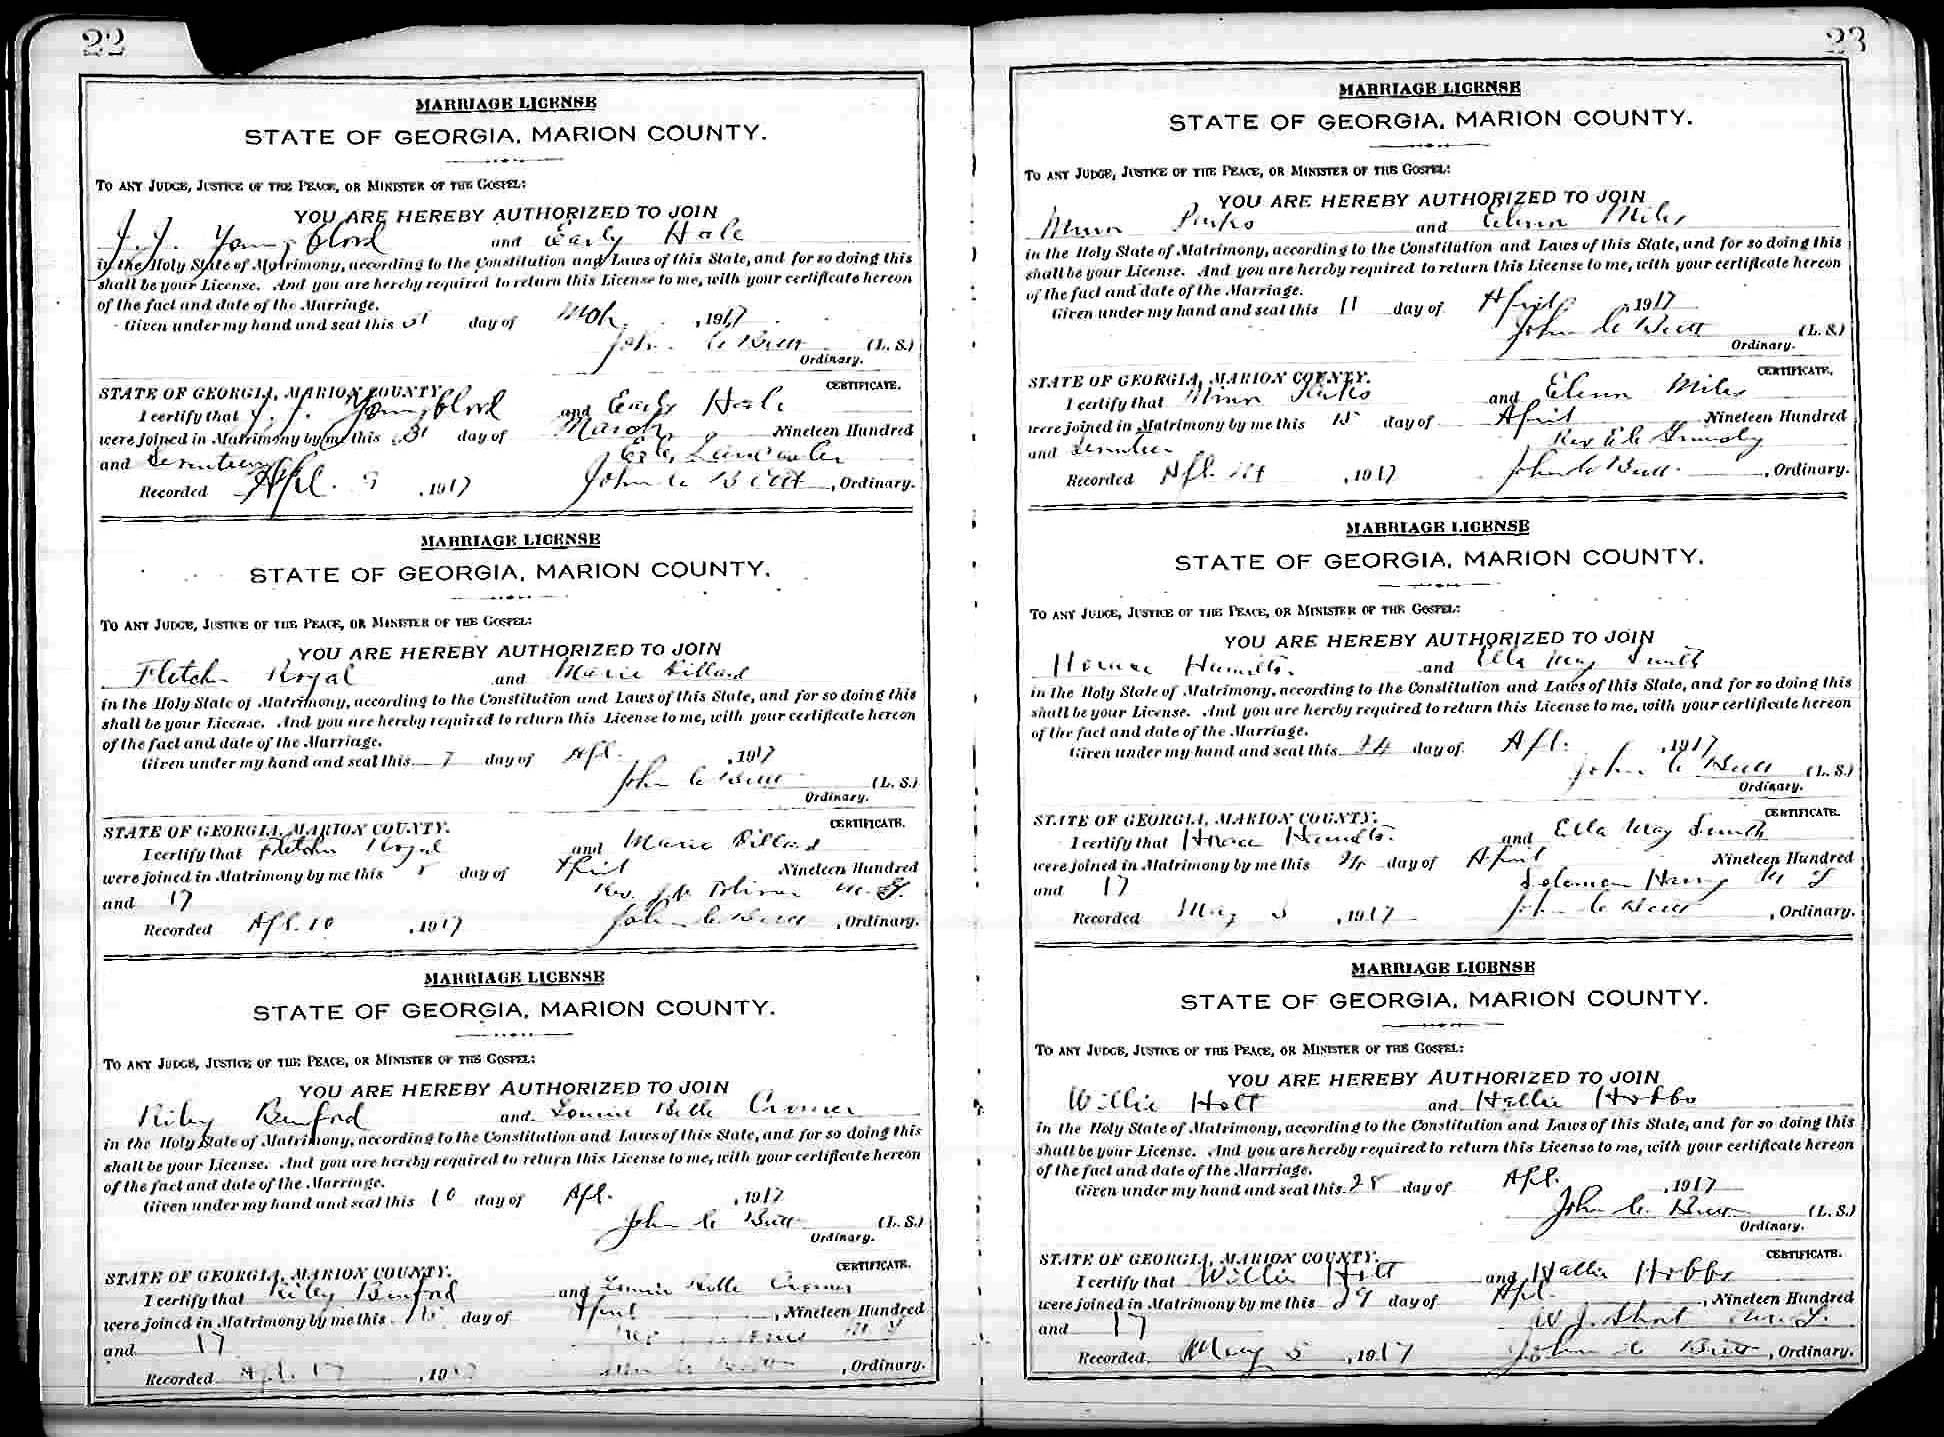 22
MARRIAGE LICENSE
STATE OF GEORGIA, MARION COUNTY.
TO ANY JUDGE, JUSTICE OF THE PEACE, OR MINISTER OF THE GOSPEL:
YOU ARE HEREBY AUTHORIZED TO JOIN
J. J. Youngblood and Early Hale
in the Holy State of Matrimony, according to the Constitution and Laws of this State, and for so doing this
shall be your License. And you are hereby required to return this License to me, with your certificate hereon
of the fact and date of the Marriage.
Given under my hand and seal this 31 day of Mch. , 1917
John C Butt (L. S.)
Ordinary.
CERTIFICATE.
STATE OF GEORGIA, MARION COUNTY.
I certify that J. J. Youngblood and Early Hale
were joined in Matrimony by me this 31 day of March Nineteen Hundred
and Seventeen
Recorded Apl. 9 , 1917 John C Butt , Ordinary.
MARRIAGE LICENSE
STATE OF GEORGIA, MARION COUNTY.
TO ANY JUDGE, JUSTICE OF THE PEACE, OR MINISTER OF THE GOSPEL:
YOU ARE HEREBY AUTHORIZED TO JOIN
Fletcher Royal and Marie Dillard
in the Holy State of Matrimony, according to the Constitution and Laws of this State, and for so doing this
shall be your License. And you are hereby required to return this License to me, with your certificate hereon
of the fact and date of the Marriage.
Given under my hand and seal this 7 day of Apl. , 1917
John C Butt (L. S.)
Ordinary.
CERTIFICATE.
STATE OF GEORGIA, MARION COUNTY.
I certify that Fletcher Royal and Marie Dillard
were joined in Matrimony by me this 8 day of April Nineteen Hundred
and 17 Rev. M. G.
Recorded Apl. 10 , 1917 John C Butt , Ordinary.
MARRIAGE LICENSE
STATE OF GEORGIA, MARION COUNTY.
TO ANY JUDGE, JUSTICE OF THE PEACE, OR MINISTER OF THE GOSPEL:
YOU ARE HEREBY AUTHORIZED TO JOIN
Riley Benford and Lonnie Belle Cromer
in the Holy State of Matrimony, according to the Constitution and Laws of this State, and for so doing this
shall be your License. And you are hereby required to return this License to me, with your certificate hereon
of the fact and date of the Marriage.
Given under my hand and seal this 10 day of Apl. , 1917
John C Butt (L. S.)
Ordinary.
CERTIFICATE.
STATE OF GEORGIA, MARION COUNTY.
I certify that Riley Benford and Lonnie Belle Cromer
were joined in Matrimony by me this 15 day of April , Nineteen Hundred
and 17 M G
Recorded Apl. 17 , 1917 John C Butt , Ordinary.
23
MARRIAGE LICENSE
STATE OF GEORGIA, MARION COUNTY.
TO ANY JUDGE, JUSTICE OF THE PEACE, OR MINISTER OF THE GOSPEL:
YOU ARE HEREBY AUTHORIZED TO JOIN
Parks and Elenn Miles
in the Holy State of Matrimony, according to the Constitution and Laws of this State, and for so doing this
shall be your License. And you are hereby required to return this License to me, with your certificate hereon
of the fact and date of the Marriage.
Given under my hand and seal this 11 day of April , 1917
John C Butt (L. S.)
Ordinary.
CERTIFICATE.
STATE OF GEORGIA, MARION COUNTY.
I certify that Parks and Elenn Miles
were joined in Matrimony by me this 15 day of April Nineteen Hundred
and Seventeen Rev
Recorded Apl. 24 , 1917 John C Butt , Ordinary.
MARRIAGE LICENSE
STATE OF GEORGIA, MARION COUNTY.
TO ANY JUDGE, JUSTICE OF THE PEACE, OR MINISTER OF THE GOSPEL:
YOU ARE HEREBY AUTHORIZED TO JOIN
Horace Hamilton and Ella May Smith
in the Holy State of Matrimony, according to the Constitution and Laws of this State, and for so doing this
shall be your License. And you are hereby required to return this License to me, with your certificate hereon
of the fact and date of the Marriage.
Given under my hand and seal this 24 day of Apl. , 1917
John C Butt (L. S.)
Ordinary.
CERTIFICATE.
STATE OF GEORGIA, MARION COUNTY.
I certify that Horace Hamilton and Ella May Smith
were joined in Matrimony by me this 24 day of April Nineteen Hundred
and 17 Solomon M G
Recorded May 5 , 1917 John C Butt , Ordinary.
MARRIAGE LICENSE
STATE OF GEORGIA, MARION COUNTY.
TO ANY JUDGE, JUSTICE OF THE PEACE, OR MINISTER OF THE GOSPEL:
YOU ARE HEREBY AUTHORIZED TO JOIN
Willie Holt and Hallie Hobbs
in the Holy State of Matrimony, according to the Constitution and Laws of this State, and for so doing this
shall be your License. And you are hereby required to return this License to me, with your certificate hereon
of the fact and date of the Marriage.
Given under my hand and seal this 28 day of Apl. , 1917
John C. Butt (L. S.)
Ordinary.
CERTIFICATE.
STATE OF GEORGIA, MARION COUNTY.
I certify that Willie Holt and Hallie Hobbs
were joined in Matrimony by me this 29 day of Apl. , Nineteen Hundred
and 17 W J. Short M. G.
Recorded May 5 , 1917 John C Butt , Ordinary.